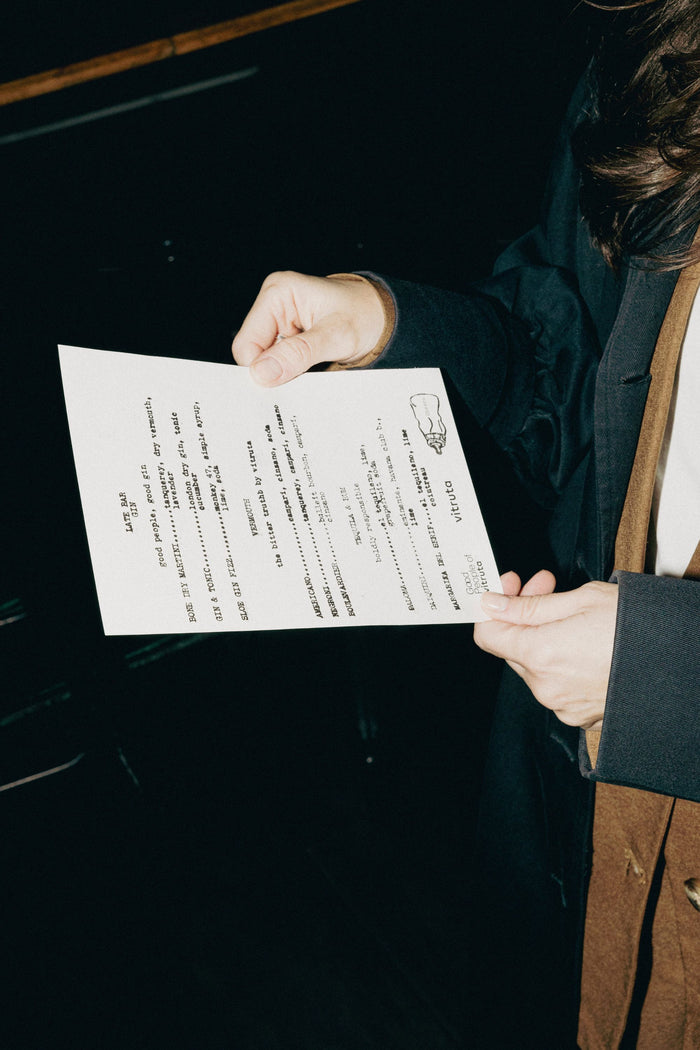 LATE BAR
GIN
good people, good gin
BONE DRY MARTINI.......tanquerey, dry vermouth,
lavender
GIN & TONIC............london dry gin, tonic
cucumber
SLOE GIN FIZZ..........monkey 47, simple syrup,
lime, soda
VERMOUTH
the bitter truthb by vitruta
AMERICANO..............campari, cinzano, soda
NEGRONI................tanquerey, campari, cinzano
BOULEVARDIER...........bulleit bourbon, campari,
cinzano
TEQUILA & RUM
boldly responsible
PALOMA.................el tequileno, lime,
grapefruit soda
DAIQUIRI...............eminente, havana club b.,
lime
DEL...el tequileno, lime
cointreau
Good
People of
vitruta
vitruta